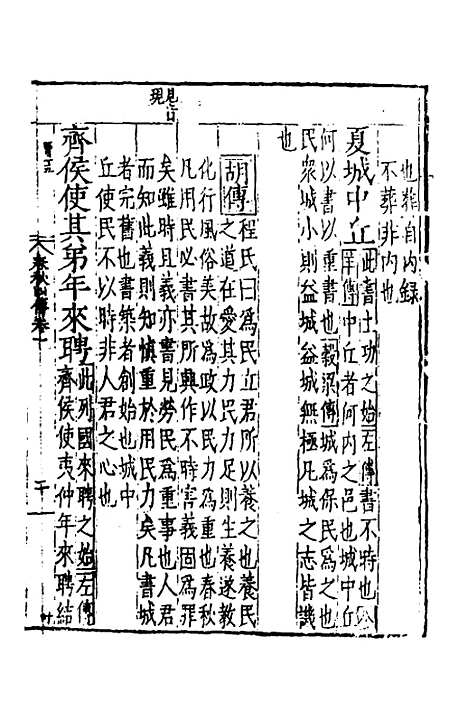 也 自内録
不葬非内也
夏城中丘
此書土功之始左傳書不時也公
羊傳中丘者何内之邑也城中丘
何以書以重書也穀梁傳城為保民為之也
民衆城小則益城益城無極凡城之志皆譏
也
胡傳
程氏曰為民立君所以養之也養民
之道在愛其力民力足則生養遂教
化行風俗美故為政以民力為重也春秋
凡用民必書其所興作不時害義固為罪
矣雖時且義亦書見勞民為重事也人君
而知此義則知慎重於用民力矣凡書城
者完舊也書築者創始也城中
丘使民不以時非人君之心也
見音
現
齊侯使其弟年來聘
此列國來聘之始左傳
齊侯使夷仲年來聘結
春秋四傳卷一
十